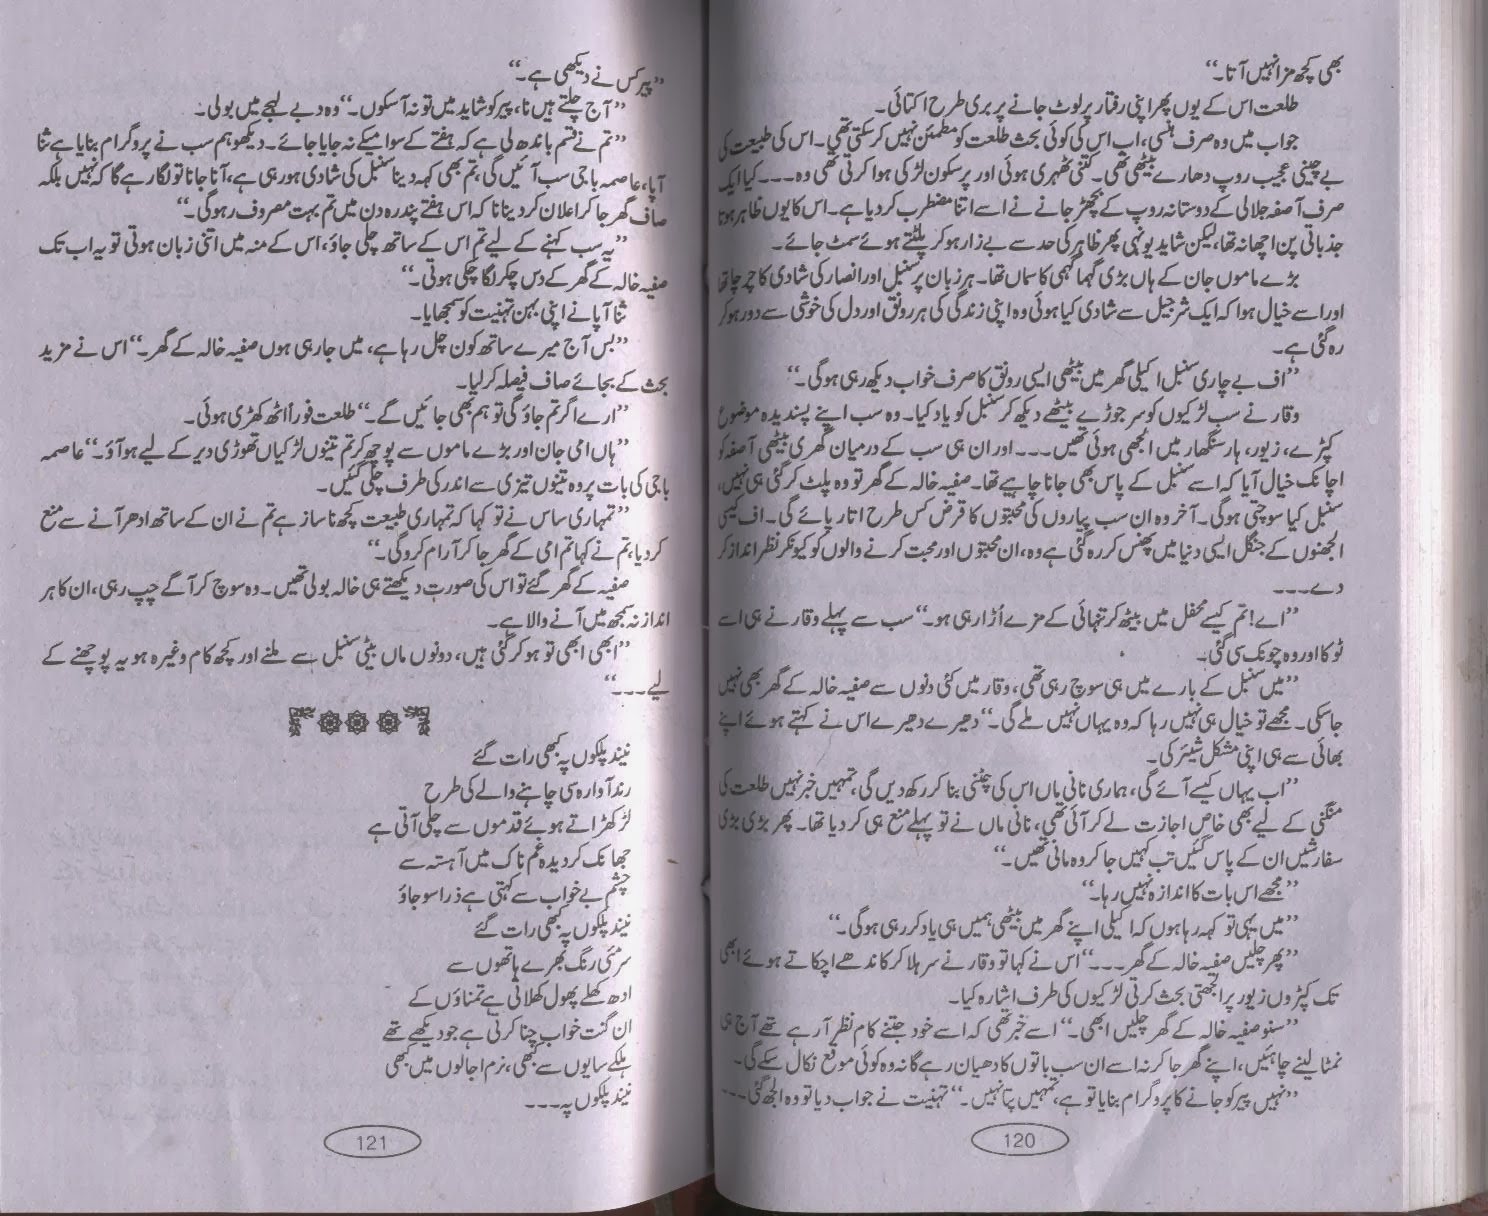 بھی کچھ مزا نہیں آتا۔‘‘
طلعت اس کے یوں پھر اپنی رفتار پر لوٹ جانے پر بری طرح اکتائی۔
جواب میں وہ صرف ہنسی، اب اس کی کوئی بحث طلعت کو مطمئن نہیں کرسکتی تھی۔ اس کی طبیعت کی
بے چینی عجیب روپ دھارے بیٹھی تھی۔ کتنی ٹھہری ہوئی اور پرسکون لڑکی ہوا کرتی تھی وہ۔۔۔ کیا ایک
صرف آصفہ جلالی کے دوستانہ روپ کے بچھڑ جانے نے اسے اتنا مضطرب کردیا ہے۔ اس کا یوں ظاہر ہوتا
جذباتی پن اچھا نہ تھا، لیکن شاید یونہی پھر ظاہر کی حد سے بے زار ہو کر پلٹتے ہوئے سمٹ جائے۔
بڑے ماموں جان کے ہاں بڑی گہما گہمی کا سماں تھا۔ ہر زبان پر سنبل اور انصار کی شادی کا چرچا تھا
اور اسے خیال ہوا کہ ایک شرجیل سے شادی کیا ہوئی وہ اپنی زندگی کی ہر رونق اور دل کی خوشی سے دور ہو کر
رہ گئی ہے۔
’’اف بے چاری سنبل اکیلی گھر میں بیٹھی ایسی رونق کا صرف خواب دیکھ رہی ہوگی۔‘‘
وقار نے سب لڑکیوں کو سر جوڑے بیٹھے دیکھ کر سنبل کو یاد کیا۔ وہ سب اپنے پسندیدہ موضوع
کپڑے، زیور، ہار سنگھار میں الجھی ہوئی تھیں۔۔۔ اور ان ہی سب کے درمیان گھری بیٹھی آصفہ کو
اچانک خیال آیا کہ اسے سنبل کے پاس بھی جانا چاہیے تھا۔ صفیہ خالہ کے گھر تو وہ پلٹ کر گئی ہی نہیں،
سنبل کیا سوچتی ہوگی۔ آخر وہ ان سب پیاروں کی محبتوں کا قرض کس طرح اتار پائے گی۔ اف کیسی
الجھنوں کے جنگل ایسی دنیا میں پھنس کر رہ گئی ہے وہ، ان محبتوں اور محبت کرنے والوں کو کیونکر نظر انداز کر
دے۔۔۔
’’اے! تم کیسے محفل میں بیٹھ کر تنہائی کے مزے اُڑا رہی ہو۔‘‘ سب سے پہلے وقار نے ہی اسے
ٹوکا اور وہ چونک سی گئی۔
’’میں سنبل کے بارے میں ہی سوچ رہی تھی، وقار میں کئی دنوں سے صفیہ خالہ کے گھر بھی نہیں
جاسکی۔ مجھے تو خیال ہی نہیں رہا کہ وہ یہاں نہیں ملے گی۔‘‘ دھیرے دھیرے اس نے کہتے ہوئے اپنے
بھائی سے ہی اپنی مشکل شیئر کی۔
’’اب یہاں کیسے آئے گی، ہماری نانی ماں اس کی چٹنی بنا کر رکھ دیں گی، تمہیں خبر نہیں طلعت کی
منگنی کے لیے بھی خاص اجازت لے کر آئی تھی، نانی ماں نے تو پہلے منع ہی کردیا تھا۔ پھر بڑی بڑی
سفارشیں ان کے پاس گئیں تب کہیں جا کر وہ مانی تھیں۔‘‘
’’مجھے اس بات کا اندازہ نہیں رہا۔‘‘
’’میں یہی تو کہہ رہا ہوں کہ اکیلی اپنے گھر میں بیٹھی ہمیں ہی یاد کر رہی ہوگی۔‘‘
’’پھر چلیں صفیہ خالہ کے گھر۔۔۔‘‘ اس نے کہا تو وقار نے سر ہلا کر کاندھے اچکاتے ہوئے ابھی
تک کپڑوں زیور پر الجھتی بحث کرتی لڑکیوں کی طرف اشارہ کیا۔
’’سنو صفیہ خالہ کے گھر چلیں ابھی۔‘‘ اسے خبر تھی کہ اسے خود جتنے کام نظر آرہے تھے آج ہی
نمٹا لینے چاہئیں، اپنے گھر جا کر نہ اسے ان سب باتوں کا دھیان رہے گا نہ وہ کوئی موقع نکال سکے گی۔
’’نہیں پیر کو جانے کا پروگرام بنایا تو ہے، تمہیں پتا نہیں۔‘‘ تہنیت نے جواب دیا تو وہ الجھ گئی۔۔۔
120
’’پیر کس نے دیکھی ہے۔‘‘
’’آج چلتے ہیں نا، پیر کو شاید میں تو نہ آسکوں۔‘‘ وہ دبے لہجے میں بولی۔
’’تم نے قسم باندھ لی ہے کہ ہفتے کے سوا میکے نہ جایا جائے۔ دیکھو ہم سب نے پروگرام بنایا ہے ثنا
آپا، عاصمہ باجی سب آئیں گی، تم بھی کہہ دینا سنبل کی شادی ہو رہی ہے، آنا جانا تو لگا رہے گا کہ نہیں بلکہ
صاف گھر جا کر اعلان کر دینا نا کہ اس ہفتے پندرہ دن میں تم بہت مصروف رہو گی۔‘‘
’’یہ سب کہنے کے لیے تم اس کے ساتھ چلی جاؤ، اس کے منہ میں اتنی زبان ہوتی تو یہ اب تک
صفیہ خالہ کے گھر کے دس چکر لگا چکی ہوتی۔‘‘
ثنا آپا نے اپنی بہن تہنیت کو سمجھایا۔
’’بس آج میرے ساتھ کون چل رہا ہے، میں جا رہی ہوں صفیہ خالہ کے گھر۔‘‘ اس نے مزید
بحث کے بجائے صاف فیصلہ کرلیا۔
’’ارے اگر تم جاؤ گی تو ہم بھی جائیں گے۔‘‘ طلعت فوراً اٹھ کھڑی ہوئی۔
’’ہاں امی جان اور بڑے ماموں سے پوچھ کر تم تینوں لڑکیاں تھوڑی دیر کے لیے ہو آؤ۔‘‘ عاصمہ
باجی کی بات پر وہ تینوں تیزی سے اندر کی طرف چلی گئیں۔
’’تمہاری ساس نے تو کہا کہ تمہاری طبیعت کچھ ناساز ہے تم نے ان کے ساتھ ادھر آنے سے منع
کردیا، تم نے کہا تم امی کے گھر جا کر آرام کرو گی۔‘‘
صفیہ کے گھر گئے تو اس کی صورت دیکھتے ہی خالہ بولی تھیں۔ وہ سوچ کر آگے چپ رہی، ان کا ہر
انداز نہ سمجھ میں آنے والا ہے۔
’’ابھی ابھی تو ہو کر گئی ہیں، دونوں ماں بیٹی سنبل سے ملنے اور کچھ کام وغیرہ ہو یہ پوچھنے کے
لیے۔۔۔‘‘
نیند پلکوں پہ کبھی رات گئے
رند آوارہ سی چاہنے والے کی طرح
لڑکھڑاتے ہوئے قدموں سے چلی آتی ہے
جھانک کر دیدہ غم ناک میں آہستہ سے
چشم بے خواب سے کہتی ہے ذرا سو جاؤ
نیند پلکوں پہ کبھی رات گئے
سرمئی رنگ بھرے ہاتھوں سے
ادھ کھلے پھول کھلاتی ہے تمناؤں کے
ان گنت خواب چنا کرتی ہے جو دیکھے تھے
ہلکے سایوں سے کبھی، نرم اجالوں میں کبھی
نیند پلکوں پہ۔۔۔
121